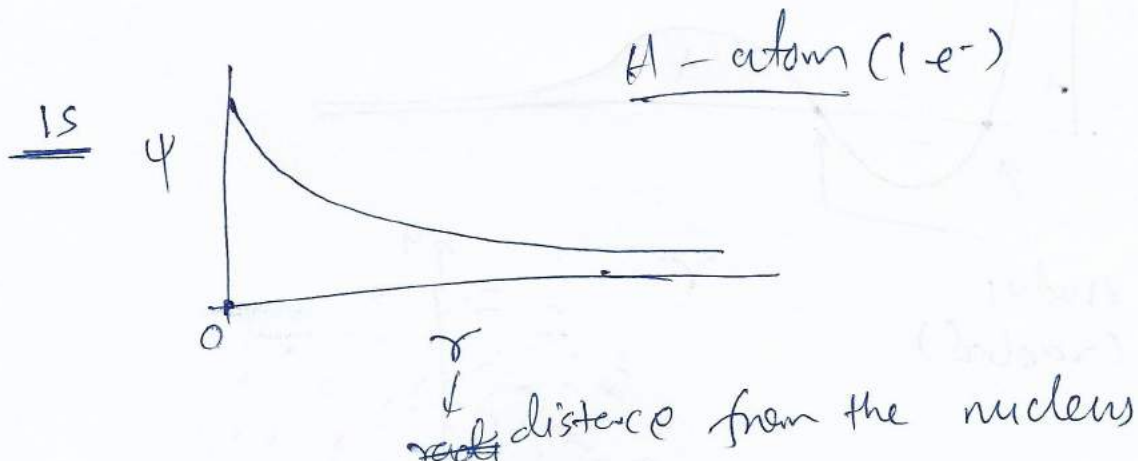 H - atom (1 e-)
1s
ψ
0
r
↓
distance from the nucleus